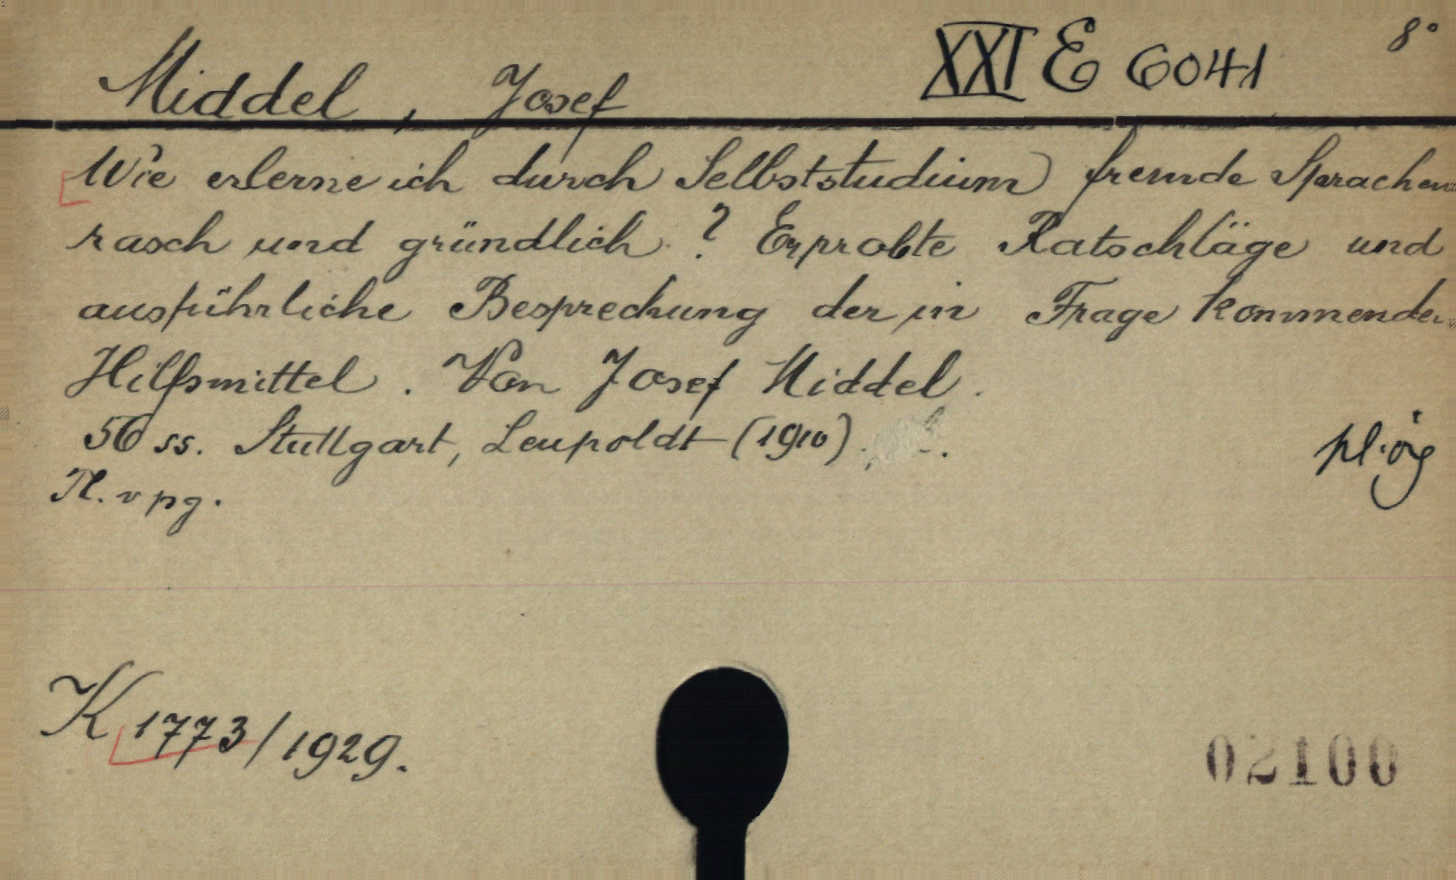 XXI E 6041 8°
Middel, Josef
Wie erlerne ich durch Selbststudium fremde Sprachen
rasch und gründlich? Erprobte Ratschläge und
ausführliche Besprechung der in Frage kommenden
Hilfsmittel. Von Josef Middel.
56 ss. Stuttgart, Leupoldt (1910).
Pl. v pg.
K 1773/1929.
02100